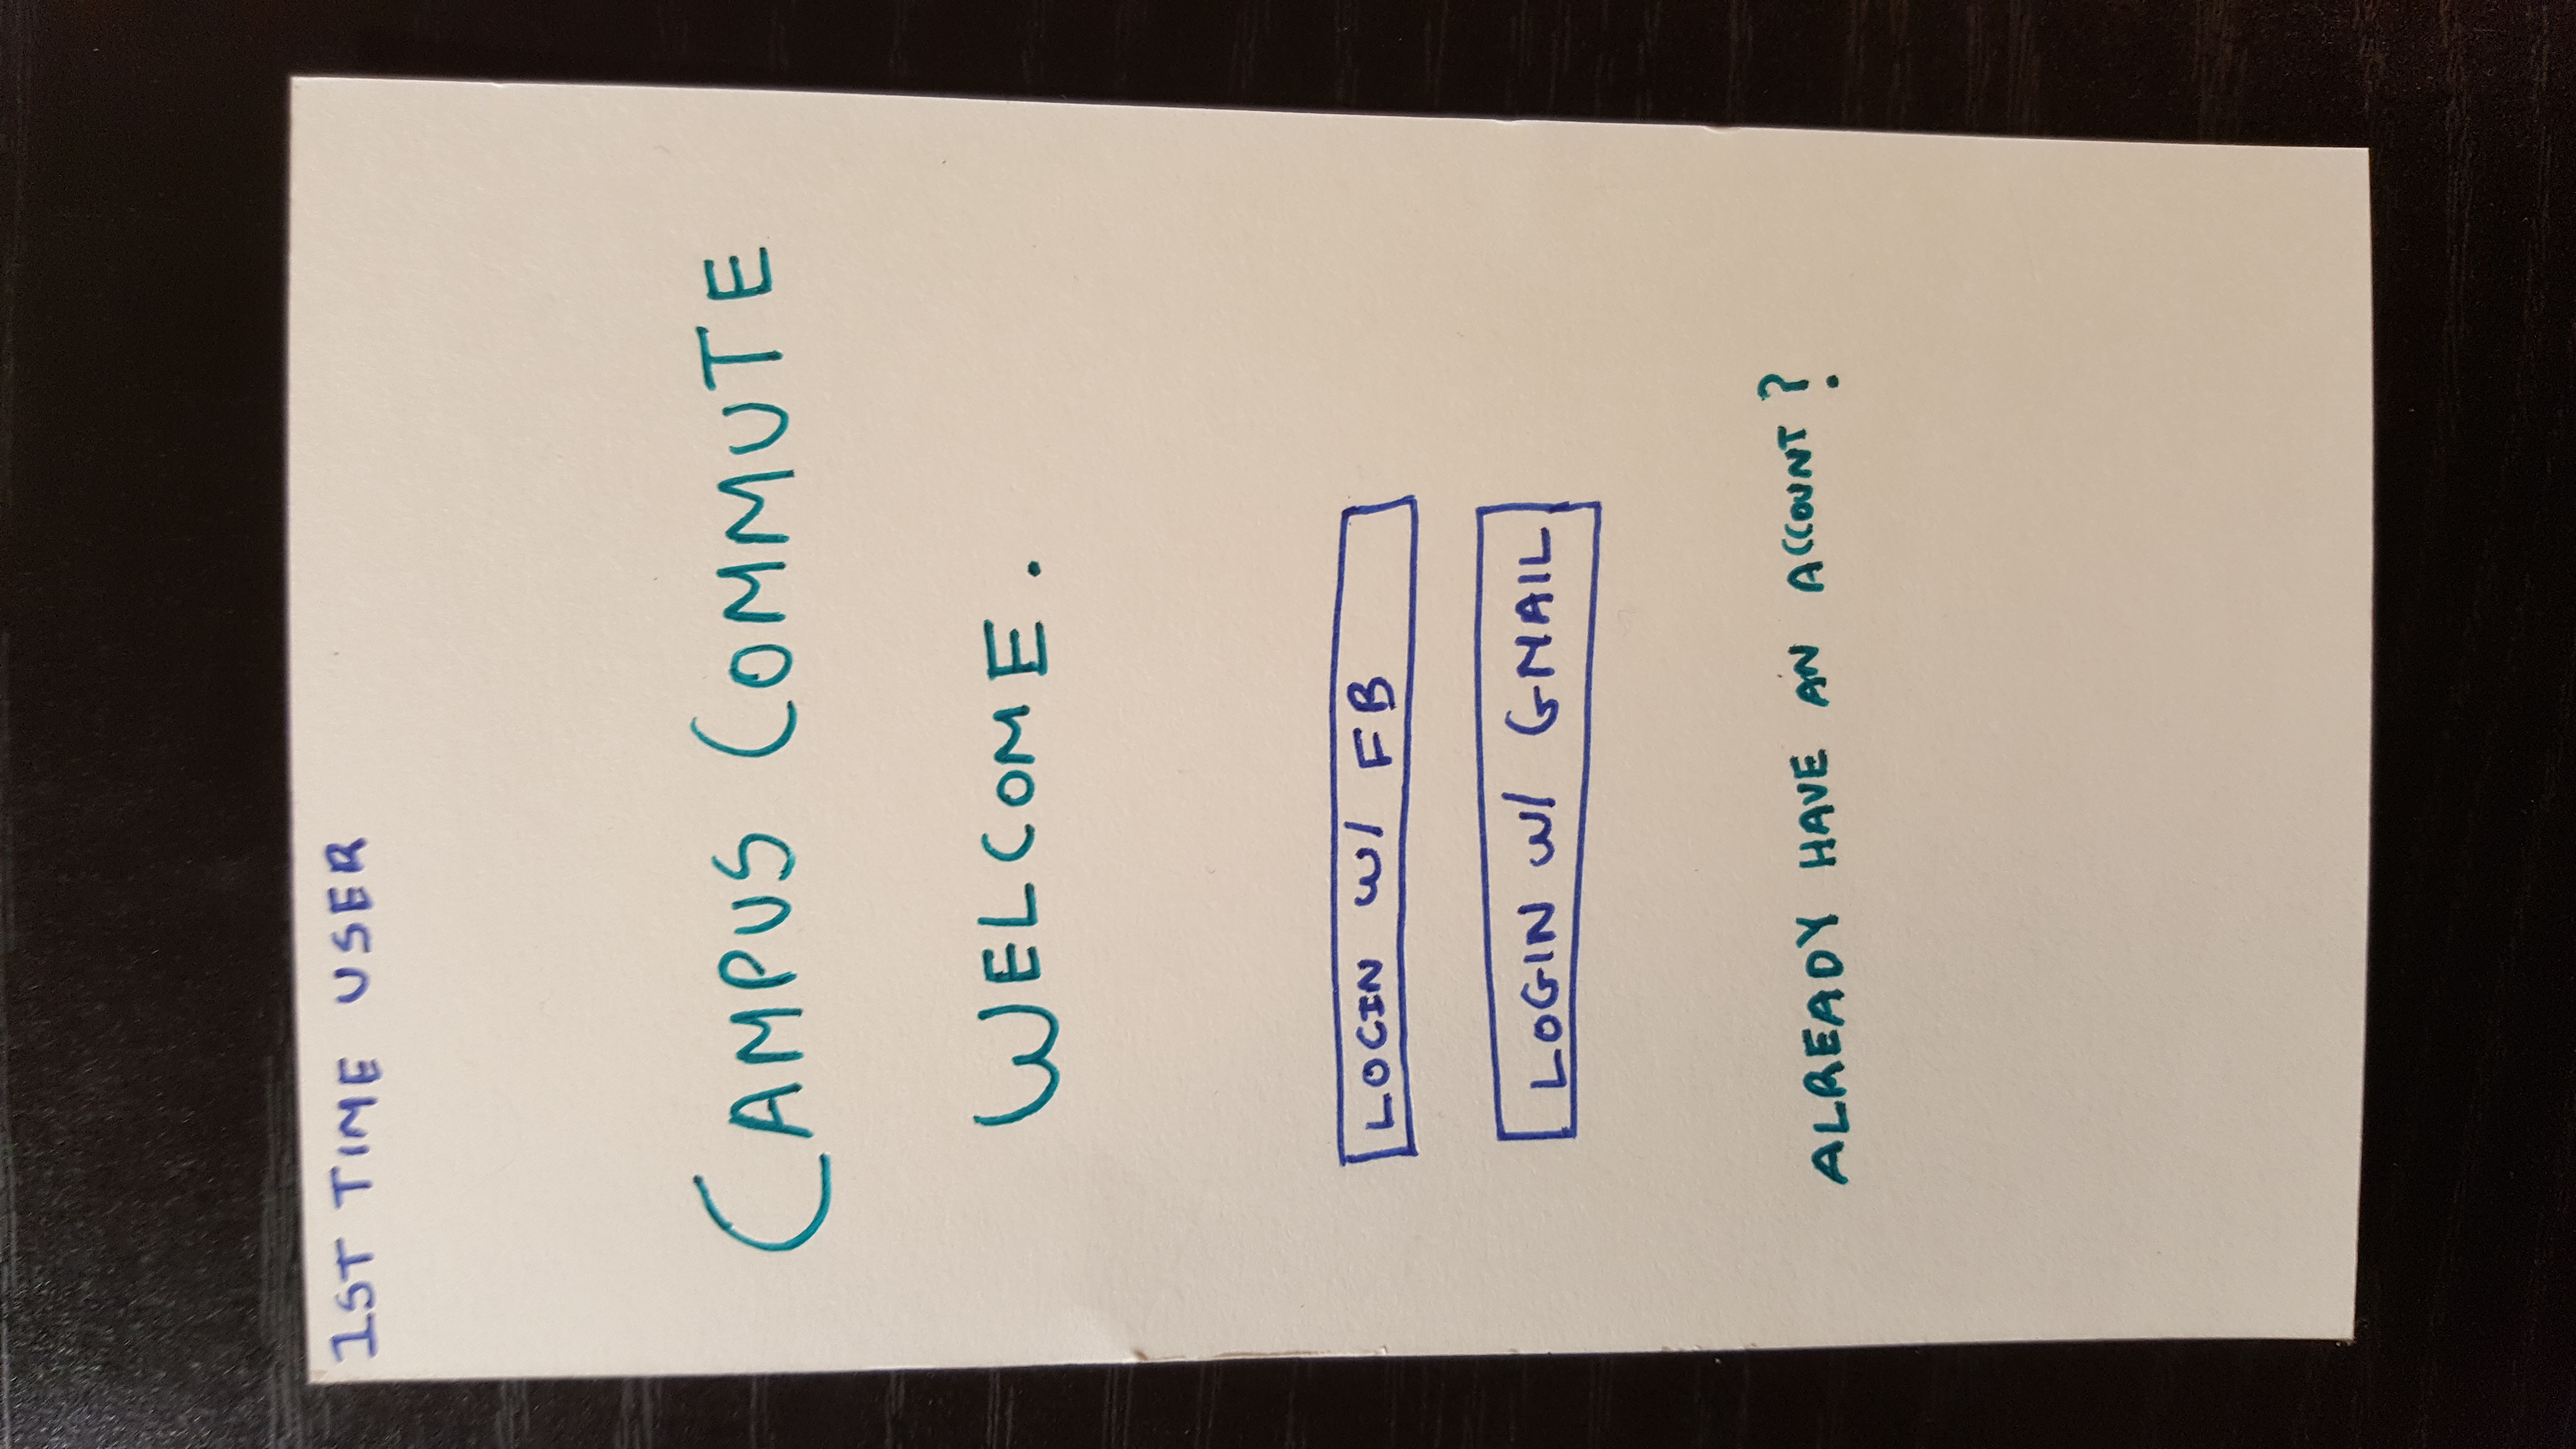 1ST TIME USER
CAMPUS COMMUTE
WELCOME.
LOGIN W/ FB
LOGIN W/ GMAIL
ALREADY HAVE AN ACCOUNT?